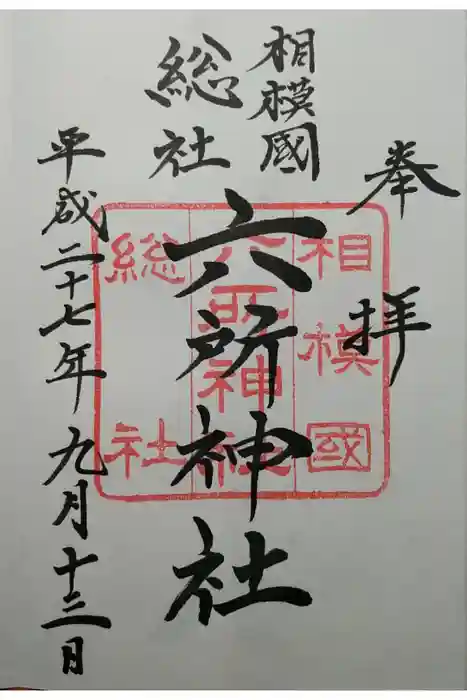 奉拝
相模國
総社
六所神社
平成二十七年九月十三日
相模國
六所神社
総社